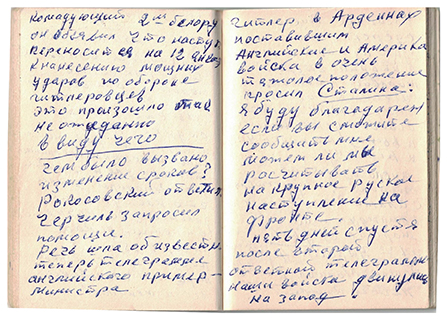 Командующий 2м белору
он объявил что наступ
переносится на 12 января
к нанесению мощных
ударов по обороне
гитлеровцев
это произошло так
неожиданно
в виду чего
Чем было вызвано
изменение сроков?
Рокосовский ответил.
Черчиль запросил
помощи.
Речь шла об известн
теперь телеграмме
английского пример-
министра
гитлер в Арденнах
поставившим
Английские и Америка
войска в очень
тяжолое положение
просил Сталина:
Я буду благодарен
если вы сможите
сообщить мне
можем ли мы
расчитывать
на крупное руское
наступление на
Фронте.
пять дней спустя
после второй
ответной телеграммы
наши войска двинулис
на запад.